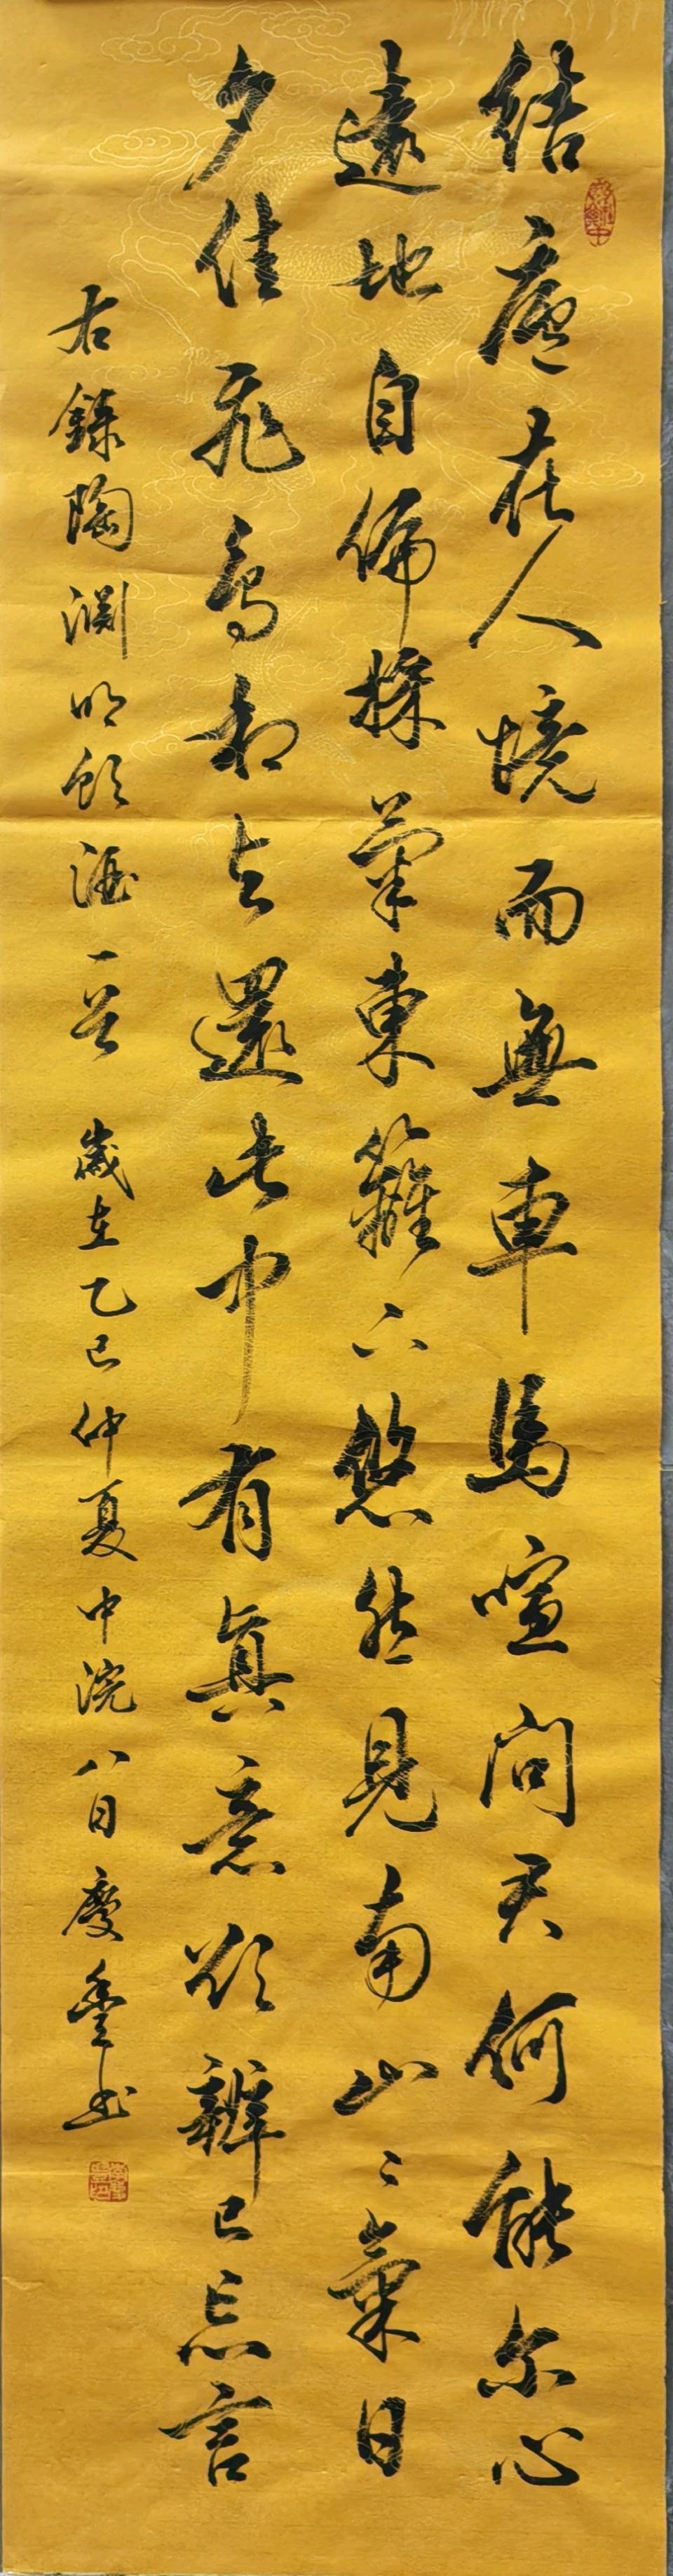 結廬在人境而無車馬喧问君何能尔心
遠地自偏採菊東籬下悠然見南山〻氣日
夕佳飛鳥相与還此中有真意欲辨已忘言
右錄陶淵明飲酒一首 歲在乙巳仲夏中浣八日慶豐书